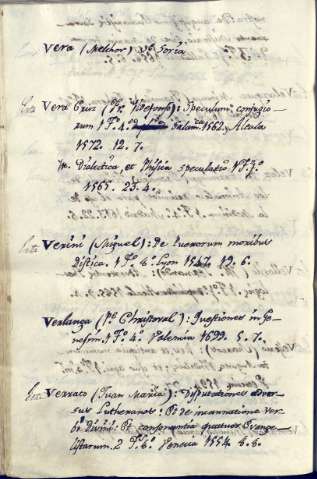 Vera (Melchor) Vᵉ Soria
esta Vera Cruz (Fr. Ildefons.): Speculum conjugio-
rum 1 Tº 4º Salam.ca 1562 y Alcala
1572. 12. 7.
Yt. Dialectica, et Phisica speculatio 1 T. Jº
1565. 23. 4.
esta Verini (Miguel): De Puerorum moribus
distica. 1 Tº 8º Lyon 1547. 19. 6.
Verlanga (Pe Christoval): Questiones in Ge-
nesim 1 Tº 4º Palencia 1699. 5. 7.
esta Verrato (Juan Maria): Disputationes adver-
sus Lutheranos: Et de incarnatione Ver-
bi Divini: Et consonantia quatuor Evange-
listarum. 2 Tº 8º Venecia 1554. 8. 8.